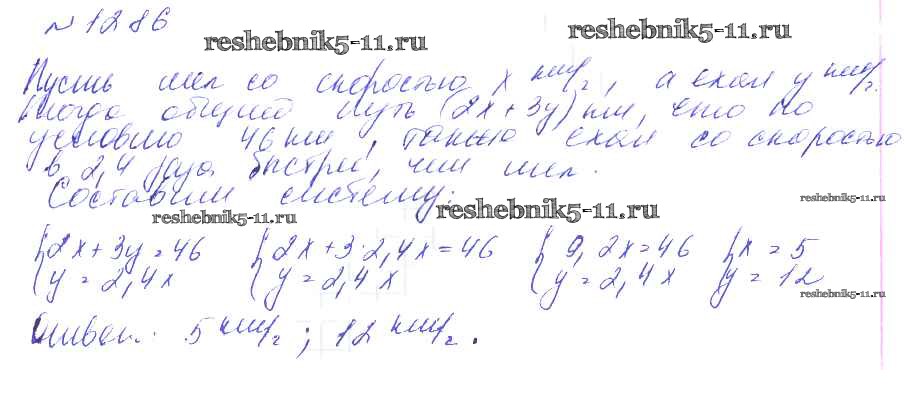 №1286
reshebnik5-11.ru
Пусть шел со скоростью x км/г, а ехал y км/г.
тогда общий путь (2x+3y) км, что по
условию 46 км, также ехал со скоростью
в 2,4 раза быстрей, чем шел.
Составим систему:
reshebnik5-11.ru reshebnik5-11.ru reshebnik5-11.ru
{2x+3y=46 {2x+3·2,4x=46 {9,2x=46 {x=5
y=2,4x y=2,4x y=2,4x y=12
reshebnik5-11.ru
Ответ: 5 км/г; 12 км/г.